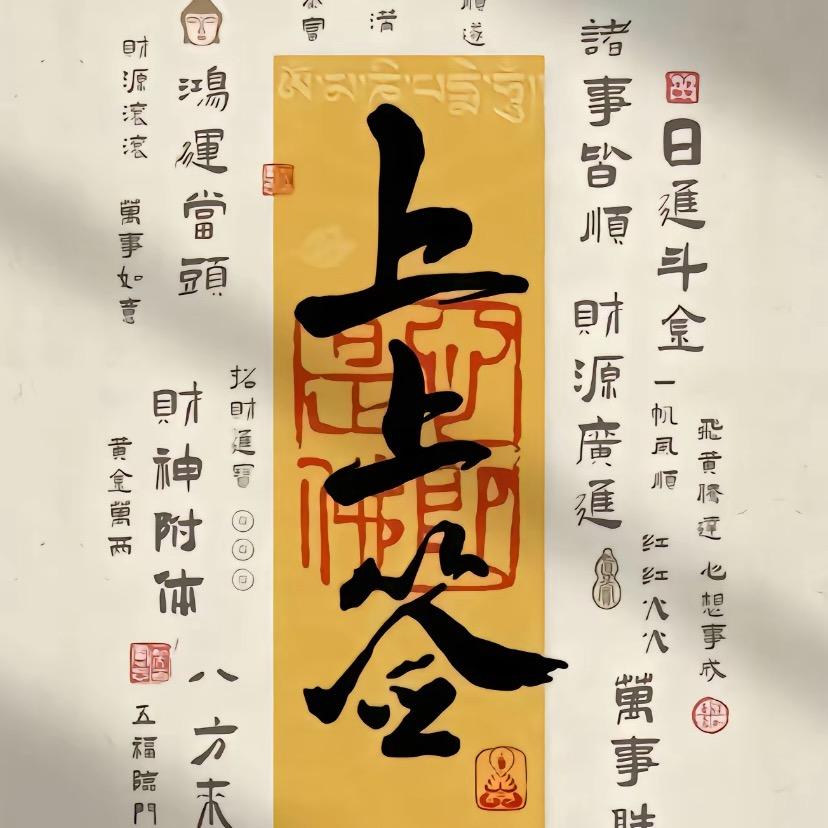 飛黃騰達
心想事成
日進斗金
一帆風順
红红火火
諸事皆順
財源廣進
萬事胜
順遂
滿
富
ཨོཾ་མ་ཎི་པདྨེ་ཧཱུྃ
上上签
招財進寶
鴻運當頭
財神附体
八方来
財源滾滾
萬事如意
黃金萬兩
五福臨門